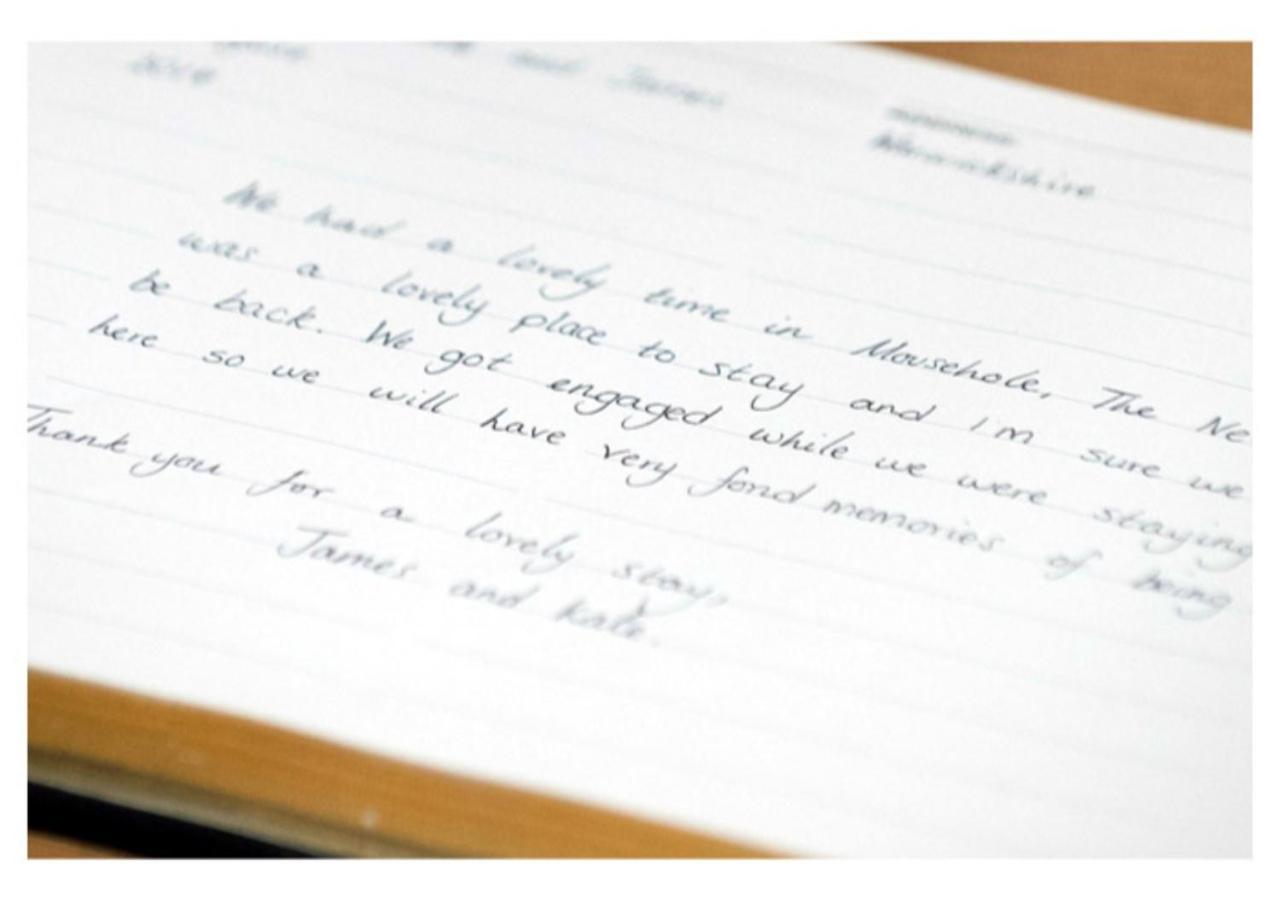 and James
Warwickshire
We had a lovely time in Mousehole, The Ne
was a lovely place to stay and I'm sure we
be back. We got engaged while we were staying
here so we will have very fond memories of being
Thank you for a lovely stay,
James and Kate.